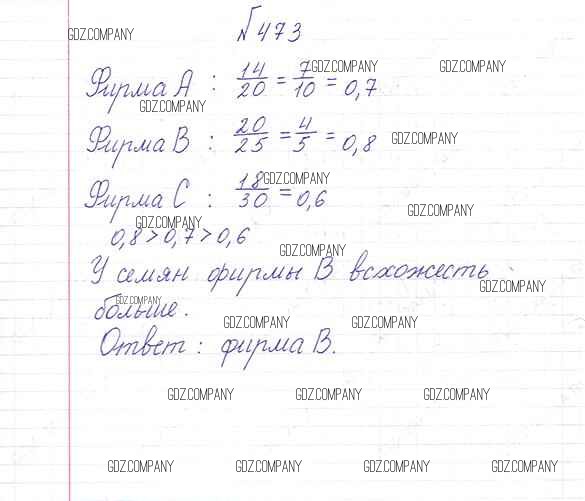 №473
GDZ.COMPANY
Фирма А : 14/20 = 7/10 = 0,7
GDZ.COMPANY GDZ.COMPANY
GDZ.COMPANY
Фирма В : 20/25 = 4/5 = 0,8
GDZ.COMPANY
GDZ.COMPANY
Фирма С : 18/30 = 0,6
GDZ.COMPANY
GDZ.COMPANY
0,8 > 0,7 > 0,6
GDZ.COMPANY
У семян фирмы В всхожесть
GDZ.COMPANY
GDZ.COMPANY
больше.
GDZ.COMPANY GDZ.COMPANY
Ответ : фирма В.
GDZ.COMPANY GDZ.COMPANY GDZ.COMPANY
GDZ.COMPANY GDZ.COMPANY GDZ.COMPANY GDZ.COMPANY